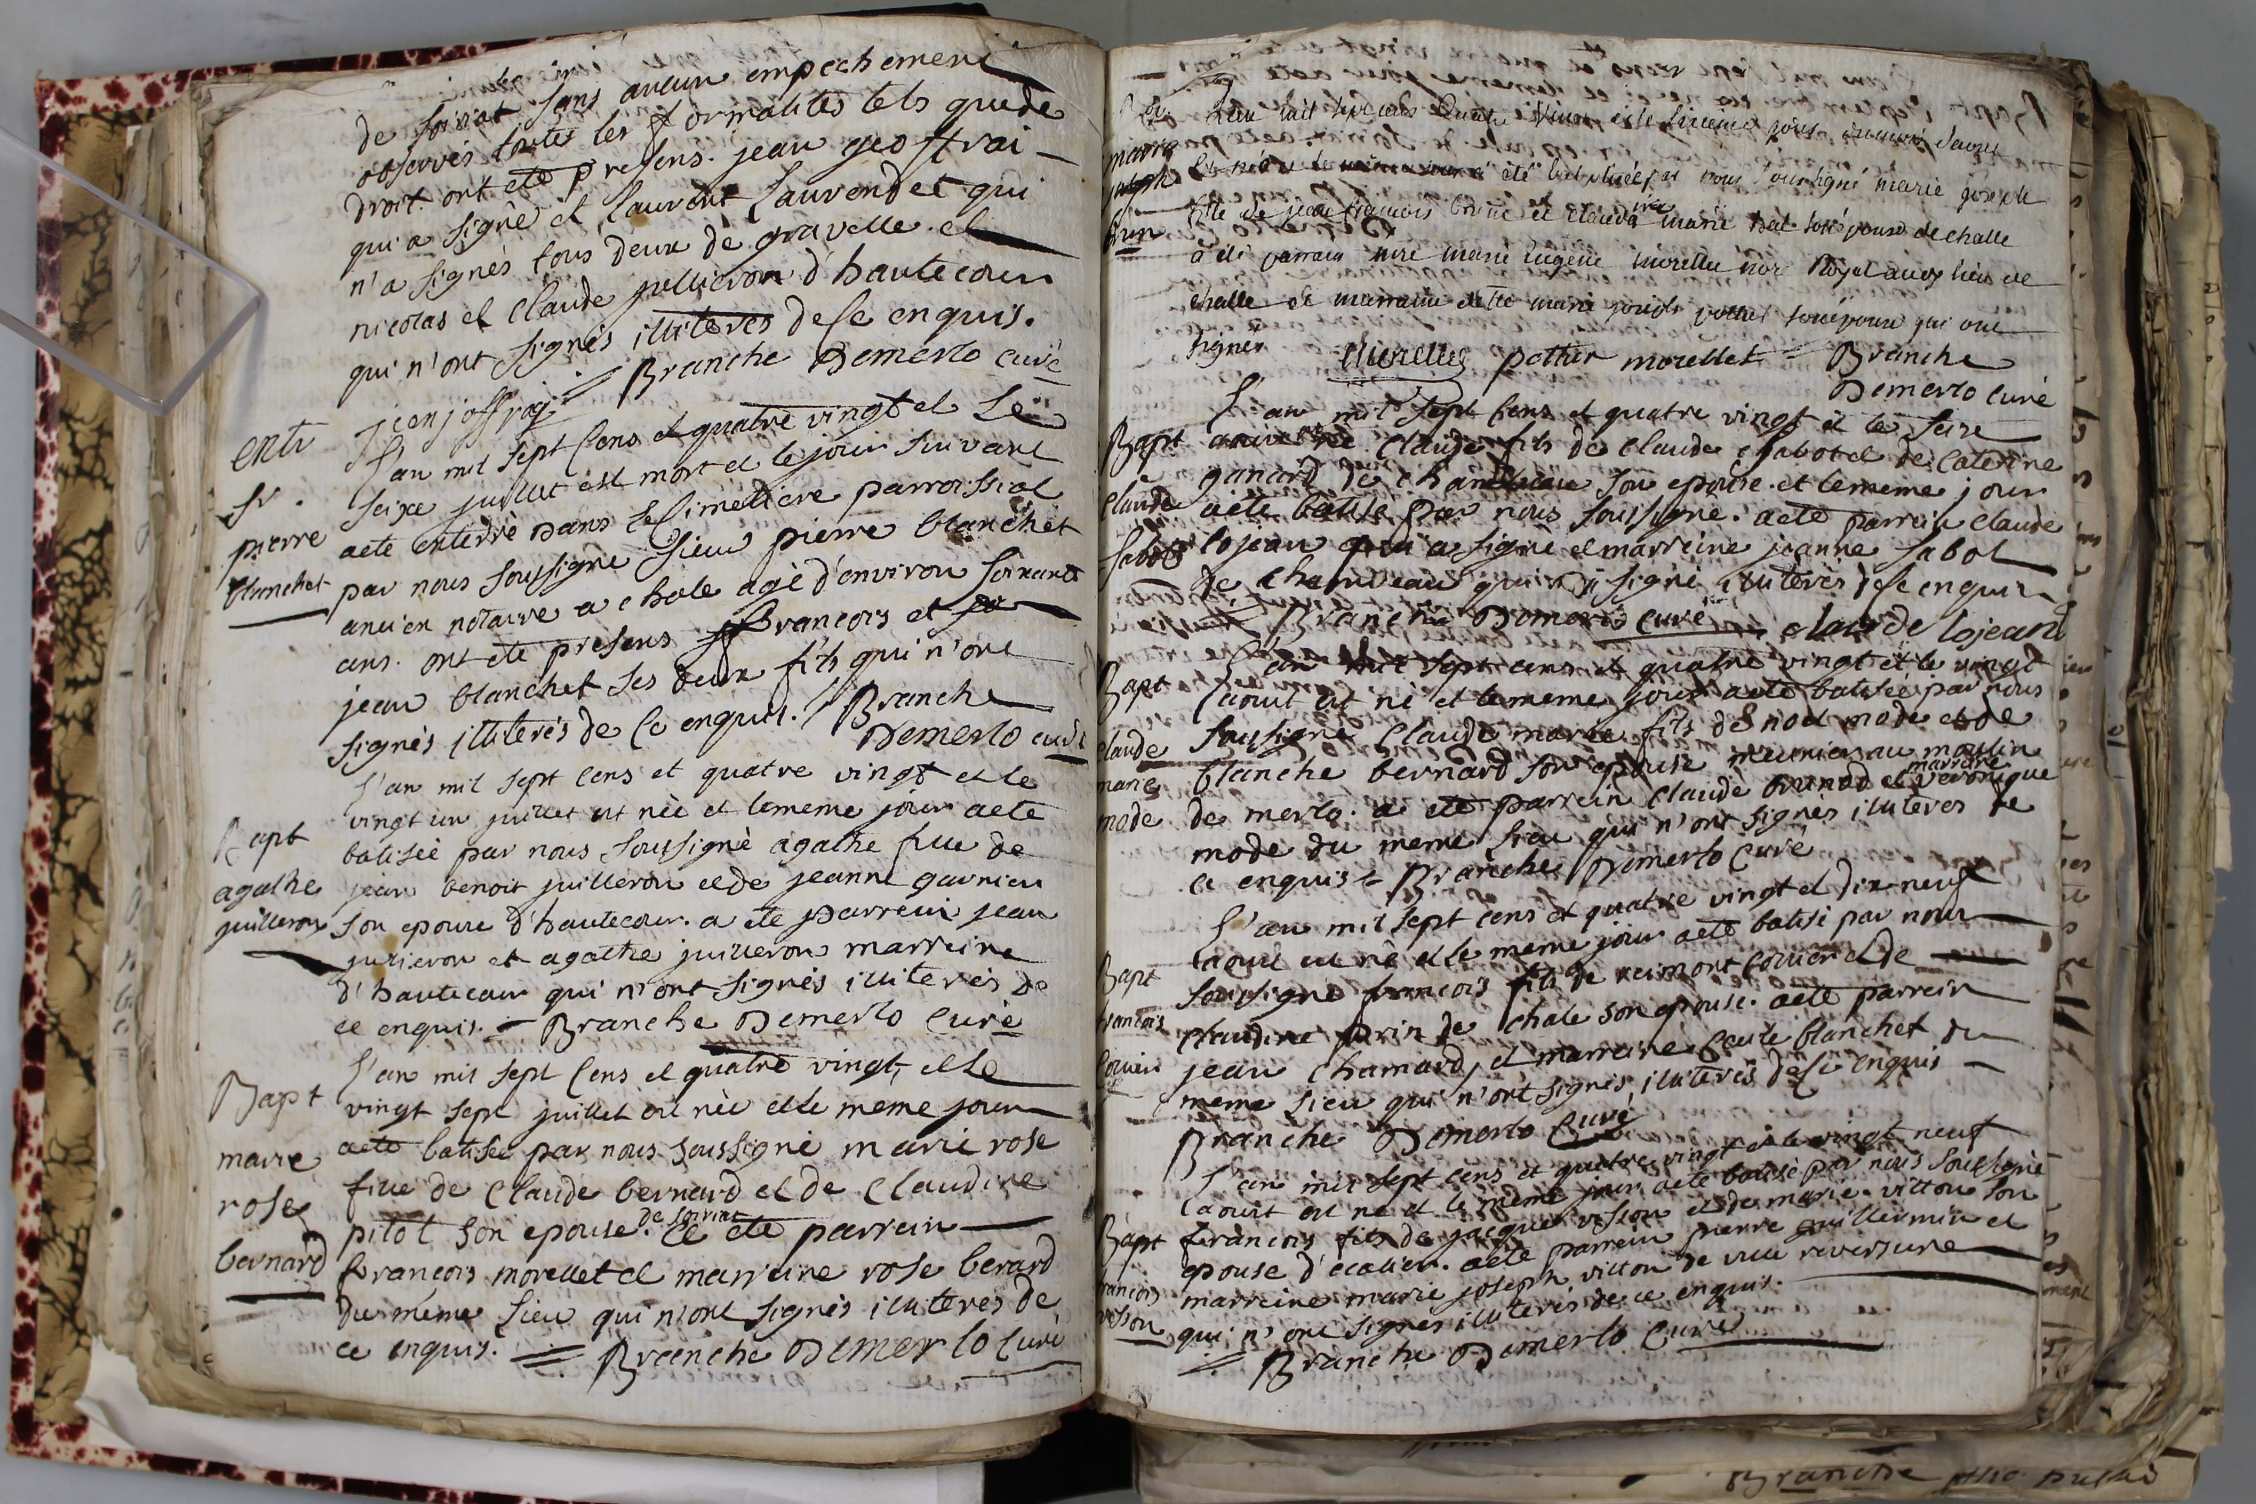 de soiriat sans aucun empechement
observés toutes les formalités tels que de
droit. ont eté presens. jean geoffrai
qui a signé et laurent laurendet qui
n'a signés tous deux de gravelle. et
nicolas et claude juilleron d'hautecour
qui n'ont signés illiteres de ce enquis.
jean joffraj Branche Demerlo curé
entr
sr.
pierre
blanchet
l'an mil sept cens et quatre vingt et le
seize juillet est mort et le jour suivant
a eté enterré dans le cimetiere parroissial
par nous soussigné sieur pierre blanchet
ancien notaire a chale agé d'environ soixante
ans. ont eté presens francois et
jean blanchet ses deux fils qui n'ont
signés illiterés de ce enquis. Branche
Demerlo curé
Bapt
agathe
juilleron
l'an mil sept cens et quatre vingt et le
vingt un juillet est née et le meme jour a eté
batisée par nous soussigné agathe fille de
jean benoit juilleron et de jeanne garnier
son epouse d'hautecour. a eté parrein jean
juilleron et agathe juilleron marreine
d'hautecour qui n'ont signés illiterés de
ce enquis. Branche Demerlo curé
Bapt
marie
rose
bernard
l'an mil sept cens et quatre vingt, et le
vingt sept juillet est née et le meme jour
a eté batisée par nous soussigné marie rose
fille de claude bernard et de claudine
pitot son epouse. de soiriat eté parrein
francois morellet et marreine rose berard
du meme lieu qui n'ont signés illiteres de
ce enquis. Branche Demerlo curé
marie
brun
été par nous soussigné marie joseph
fille de jean francois et marie son épouse de challe
a été parrain marie Eugene lieu de
challe et marraine marie pottier son épouse qui ont
signés Morellet pottier morellet Branche
Demerlo curé
Bapt
claude
sabot
l'an mil sept cens et quatre vingt et le seize
claude fils de claude sabot et de caterine
son epouse. et le meme jour
a eté batisé par nous soussigné. a eté parrein claude
lojean qui a signé et marreine jeanne sabot
de signé illiterés de ce enquis
Branche Demerlo curé claude lojean
Bapt
claude
marie
mode
l'an mil sept cens et quatre vingt et le vingt
l'aoust est né et le meme jour a eté batisée par nous
soussigné claude marie fils de noel mode et de
blanche bernard son epouse meunier au moulin
de merlo. a eté parrein claude brunod et marreine veronique
mode du meme lieu qui n'ont signés illiteres de
ce enquis Branche Demerlo curé
Bapt
francois
couier
l'an mil sept cens et quatre vingt et dix neuf
l'aout est né et le meme jour a eté batisé par nous
soussigné francois fils de reimont couier et de
claudine prin de chale son epouse. a eté parrein
jean chamard, et marreine blanchet du
meme lieu qui n'ont signés illiterés de ce enquis
Branche Demerlo curé
Bapt
francois
vesson
l'an mil sept cens et quatre vingt et le vingt neuf
l'aoust est né et le meme jour a eté batisé par nous soussigné
francois fils de jacque vesson et de marie vitton son
epouse d'ecalier. a eté parrein pierre guillermin et
marreine marie joseph vitton de reversure
qui n'ont signés illiterés de ce enquis.
Branche Demerlo curé
Branche